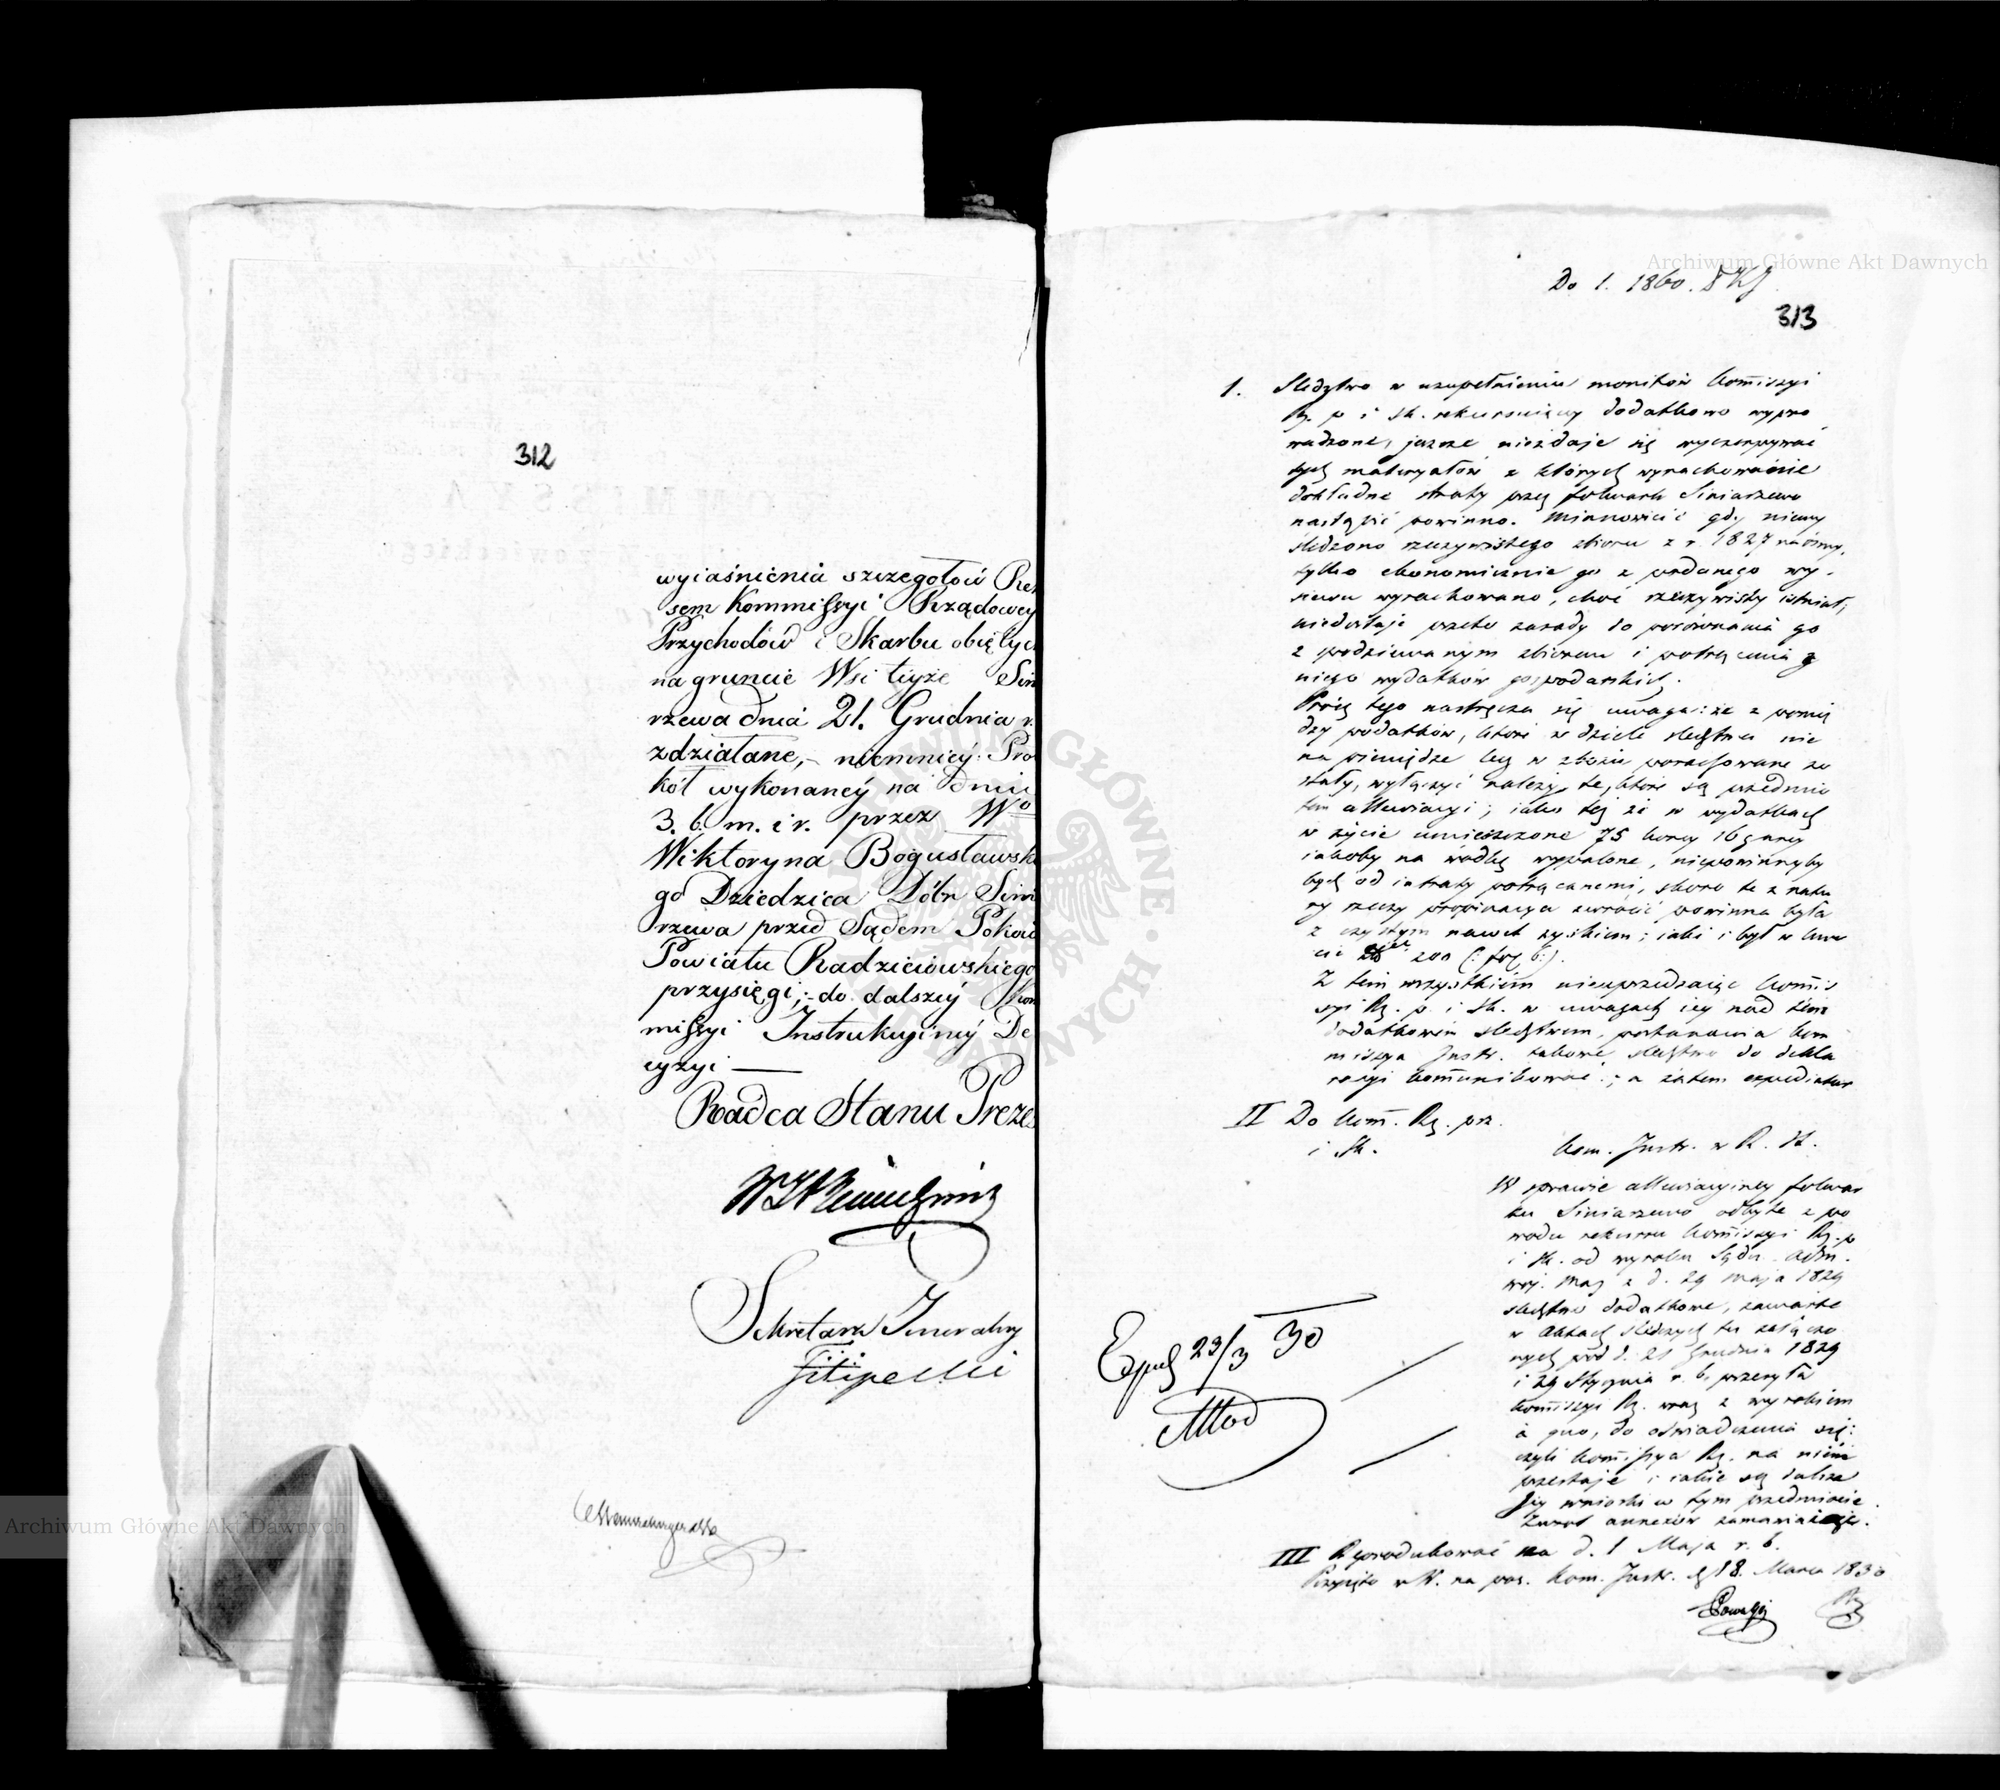 312
wyiaśnienia szczegołów Re
sem Kommissyi Rządowey
Przychodów i Skarbu obięty
na gruncie Wsi teyże Sin
rzewa dnia 21. Grudnia r.
zdziałane, niemniey Pro
kół wykonaney na dniu
3. b. m. i r. przez Wo
Wiktoryna Bogusławsk
go Dziedzica Dóbr Sini
rzewa przed Sądem Pokoiu
Powiatu Radzieiowskiego
przysięgi; do dalszey Kom
missyi Instrukcyiney De
cyzyi —
Radca Stanu Prezes
Sekretarz Jeneralny
Filipecki
Do l. 1860.
313
1. Śledztwo w uzupełnieniu monitów Kom̃issyi
Rz. p i Sk. rekursuiącey dodatkowo wypro
wadzone, jeszcze niezdaje się wyczerpywać
tych materyałów z których wyrachowanie
dokładne straty przez folwark Siniarzewo
nastąpić powinno. Mianowicie gdy
śledzono rzeczywistego zbioru z r. 1827
tylko ekonomicznie go z podanego wy-
siewu wyrachowano, choć rzeczywisty istniał;
niedostaje przeto zasady do porównania go
z spodziewanym zbiorem i potrącenia z
niego wydatków gospodarskich.
Prócz tego nastręcza się uwaga: że z pomię
dzy podatków, które w dziele śledztwa nie
na pieniądze lecz w zbożu porachowane zo
stały, wyłączyć należy te, które są przedmio
tem allewiacyi; iako też że w wydatkach
w życie umieszczone 75 korcy 16 garcy
iakoby na wódkę wypalone, niepowinnyby
bydź od intraty potrącanemi, skoro te z natu
ry rzeczy propinacya zwrócić powinna była
z czystym nawet zyskiem; iaki i był w kwo
cie 200
Z tem wszystkiem nieuprzedzaiąc Kom̃is
syi Rz. p. i Sk. w uwagach iey nad tem
dodatkowem śledztwem, postanawia Kom
missya Instr. takowe śledztwo do dekla
racyi kom̃unikować; a zatem expediatur
II Do Kom̃. Rz. prz.
i Sk.
Kom. Instr. w R. St.
W sprawie allewiacyiney folwar
ku Siniarzewo odbyte z po
wodu rekursu Kom̃issyi Rz. p
i Sk. od wyroku Sądu Adm.
woj. Maz z d. 29 Maja 1829
śledztwo dodatkowe, zawarte
w Aktach śledczych tu załączo
nych pod d. 21 Grudnia 1829
i 29 Stycznia r. b. przesyła
Kom̃issyi Rz. wraz z wyrokiem
a quo, do oświadczenia się:
czyli Kom̃issya Rz. na niem
przestaje i iakie są dalsze
Jey wnioski w tym przedmiocie.
Zwrot annexów zamawiaiąc.
Exped 23/3 30
III Reprodukować na d. 1 Maja r. b.
Przyjęto w W. na pos. Kom. Instr. d 18. Marca 1830
Archiwum Główne Akt Dawnych
Archiwum Główne Akt Dawnych